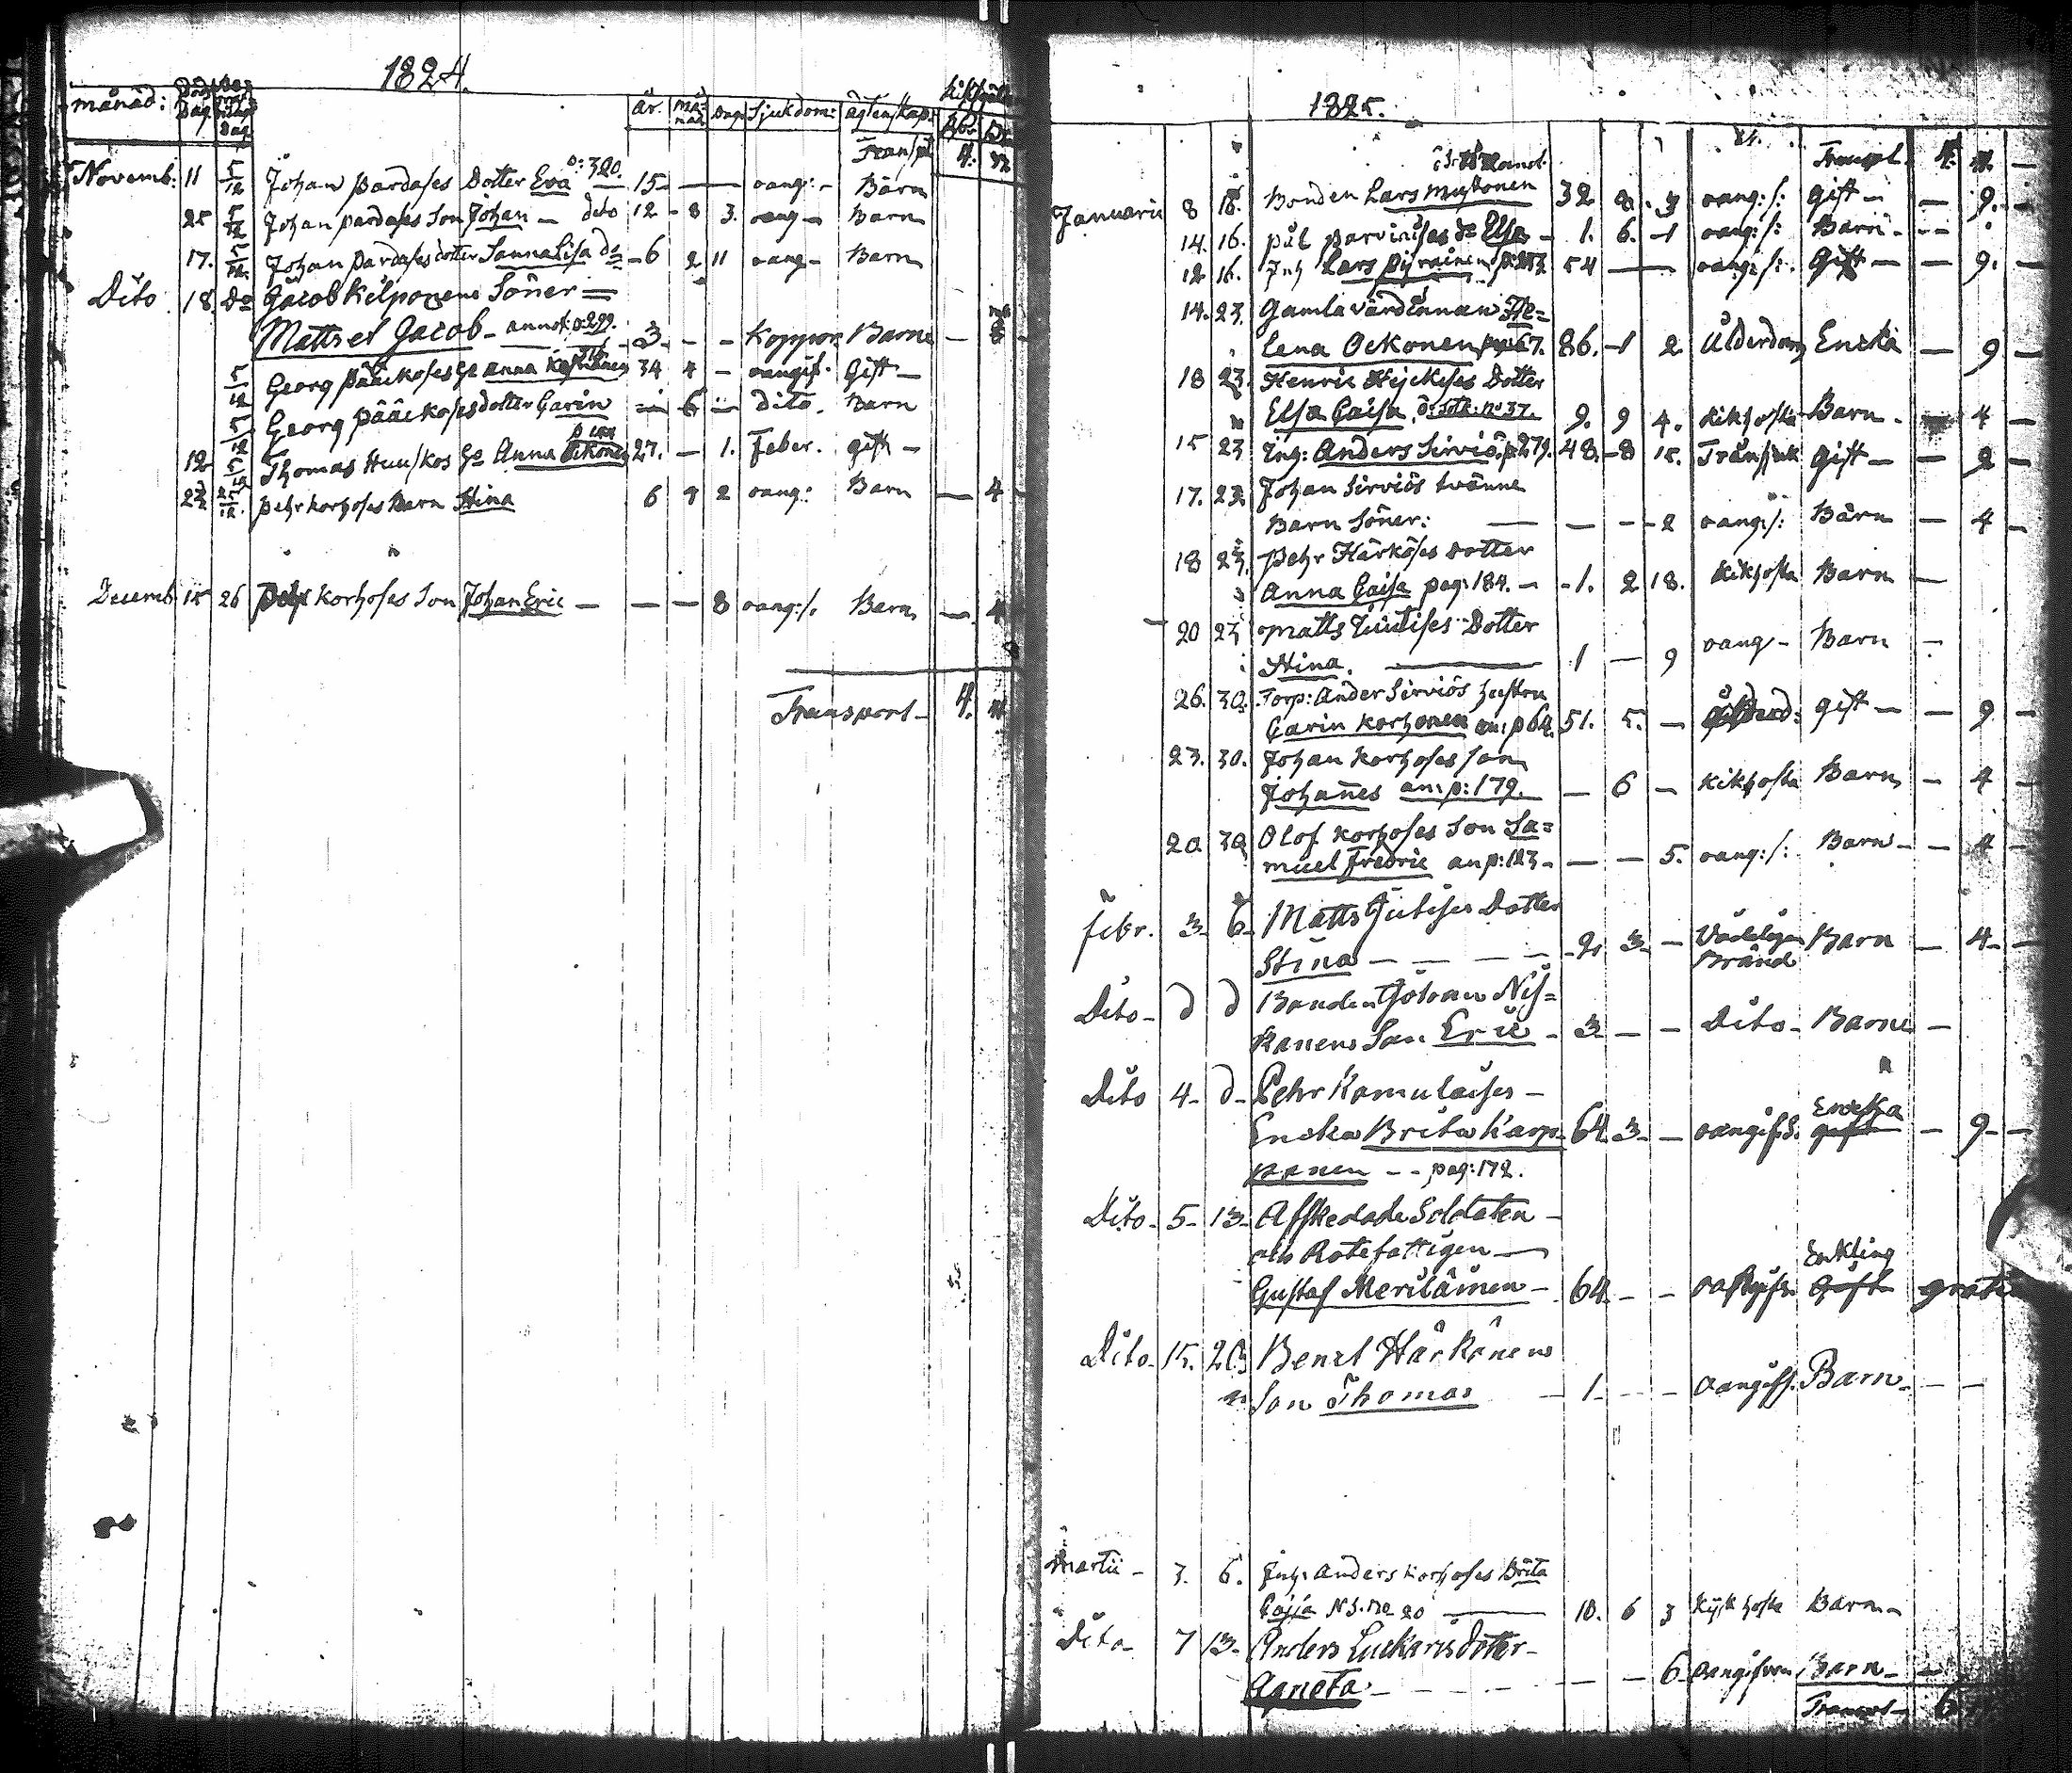 1824.
månad: Död Dag Begrafnings Dag år. månad Dag Sjukdom: ägtenskap:
Transpt 4.
Novemb: 11 5/12 Johan Pardases Dotter Eva p: 320. 15 — — oang:- Barn
25 5/12 Johan pardases Son Johan — dito 12 - 8 3. oang — Barn
17. 5/12 Johan Pardases dotter Sanna Lisa do - 6 2 11 oang- Barn
Dito 18. Do Jacob Kilponens Söner =
Matts et Jacob - annot: p: 299. - 3 - - Koppor Barn — 8
5/12 Georg Pääckoses Ha Anna 34 4 - oangif. Gift —
5/12 Georg Pääckoses dotter Carin - 6 - dito. Barn
12 5/12 Thomas Huuskos Ha Anna 27. — 1. Feber. gift —
23 27/12. Pehr Korhoses Barn Stina 6 9 2 oang: Barn — 4
Decemb 15 26 Pehr Korhoses Son Johan Eric — — — 8 oang:/. Barn — 4
Transport — 4.
1825.
Transpt. 4.
Januarii 8 16. Bonden Lars Mustonen 32 8 . 3 oang:/: Gift — — 9.
14. 16. Pål Parviaises do Elsa - 1. 6. -1 oang:/: Barn - --
12 16. Inh Lars Pyräinen 54 — oang:/: Gift — — 9.
14. 23. Gamla värdinnan He=
lena Ockonen pag 67. 86. -1 2 Ålderdom Encka — 9 —
18 23. Henric Heijckises Dotter
Elsa Caisa. no 37. 9. 9 4. Kikhosta Barn. 4 —
15 23 Inh: Anders Sirviö. p 279. 48. -8 15. Trånsjuk Gift — — 2 —
17. 23 Johan Sirviös tvänne
Barn Söner: — — - - 2 oang:/: Barn — 4 —
18 23. Pehr Härköses Dotter
Anna Caisa pag: 184. — -1. 2 18. Kikhosta Barn —
20 23 Matts Juutises Dotter
Stina. — 1 — 9 oang - Barn —
26. 30. Torp: Ander Sirviös hustru
Carin Korhonen an: p 64. 51. 5. — gift — — 9 —
23. 30. Johan Korhoses son
Johannes an: p: 179. — 6 — Kikhosta Barn — 4 —
20 30 Olof Korhoses Son Sa=
muel Fredric an p: 123 - — — 5. oang:/: Barn — - 4 —
Febr. 3 - 6 - Matts Jutises Dotter
Stina — — — — - 2. 3 - — Vådelig Brand Barn — 4 - —
Dito - d d Bonden Johan Nis=
kanens Son Eric - 3 - — — Dito - Barn —
Dito 4 - d - Pehr Komulaises —
Encka Brita Karp- 64. 3 - — oangif. Encka gift — 9 - —
panen - - pag: 172.
Dito - 5 - 13 - Afskedade Soldaten —
och Rotefattigen —
Gustaf Meriläinen — 64. - - Enkling Gift gratis
Dito - 15. 20 Bengt Härkönens
Son Thomas — 1 - - - - oangiff. Barn - - —
Martii - 3. 6. Inh: Anders Korhoses Brita
Cajsa N S. no 20 — 10. 6 3 Kijkhosta Barn -
Dito - 7 13 - Anders Luckaris dotter -
Agneta - - - - — — 6 oangifven Barn - —
Transpt - 6